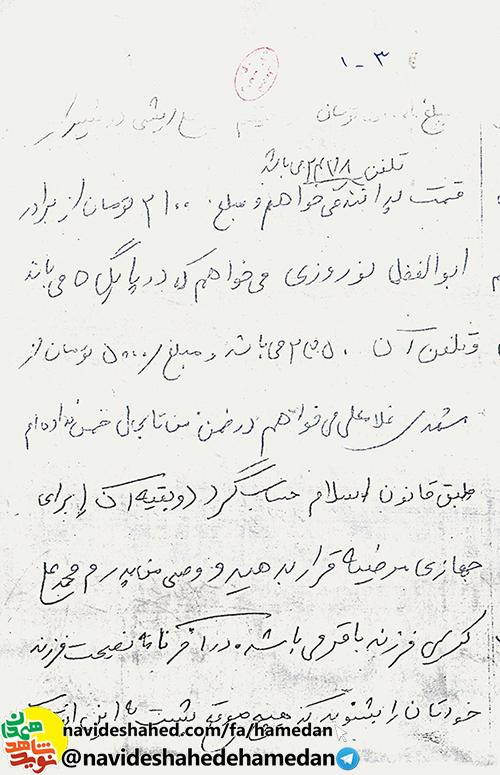 ۱-۳
مبلغ تومان
تلفن ۲۴۷۸ می باشد
قیمت می خواهم و مبلغ ۳۱۰۰ تومان از برادر
ابوالفضل نوروزی می خواهم که در پایگاه ۵ می باشد
و تلفن آن می باشد و مبلغ ۵۰۰۰ تومان از
مشهدی غلامعلی می خواهم در ضمن من تا بحال خمس نداده ام
طبق قانون اسلام حساب گردد و بقیه آن را برای
جهازی مرضیه قرار بدهید و وصی من پدرم محمد علی
کریمی فرزند باقر می باشد در آخر نامه نصیحت فرزند
خودتان را بشنوید که هیچ موقع پشت به این
نوید شاهد همدان
navideshahed.com/fa/hamedan
@navideshahedehamedan